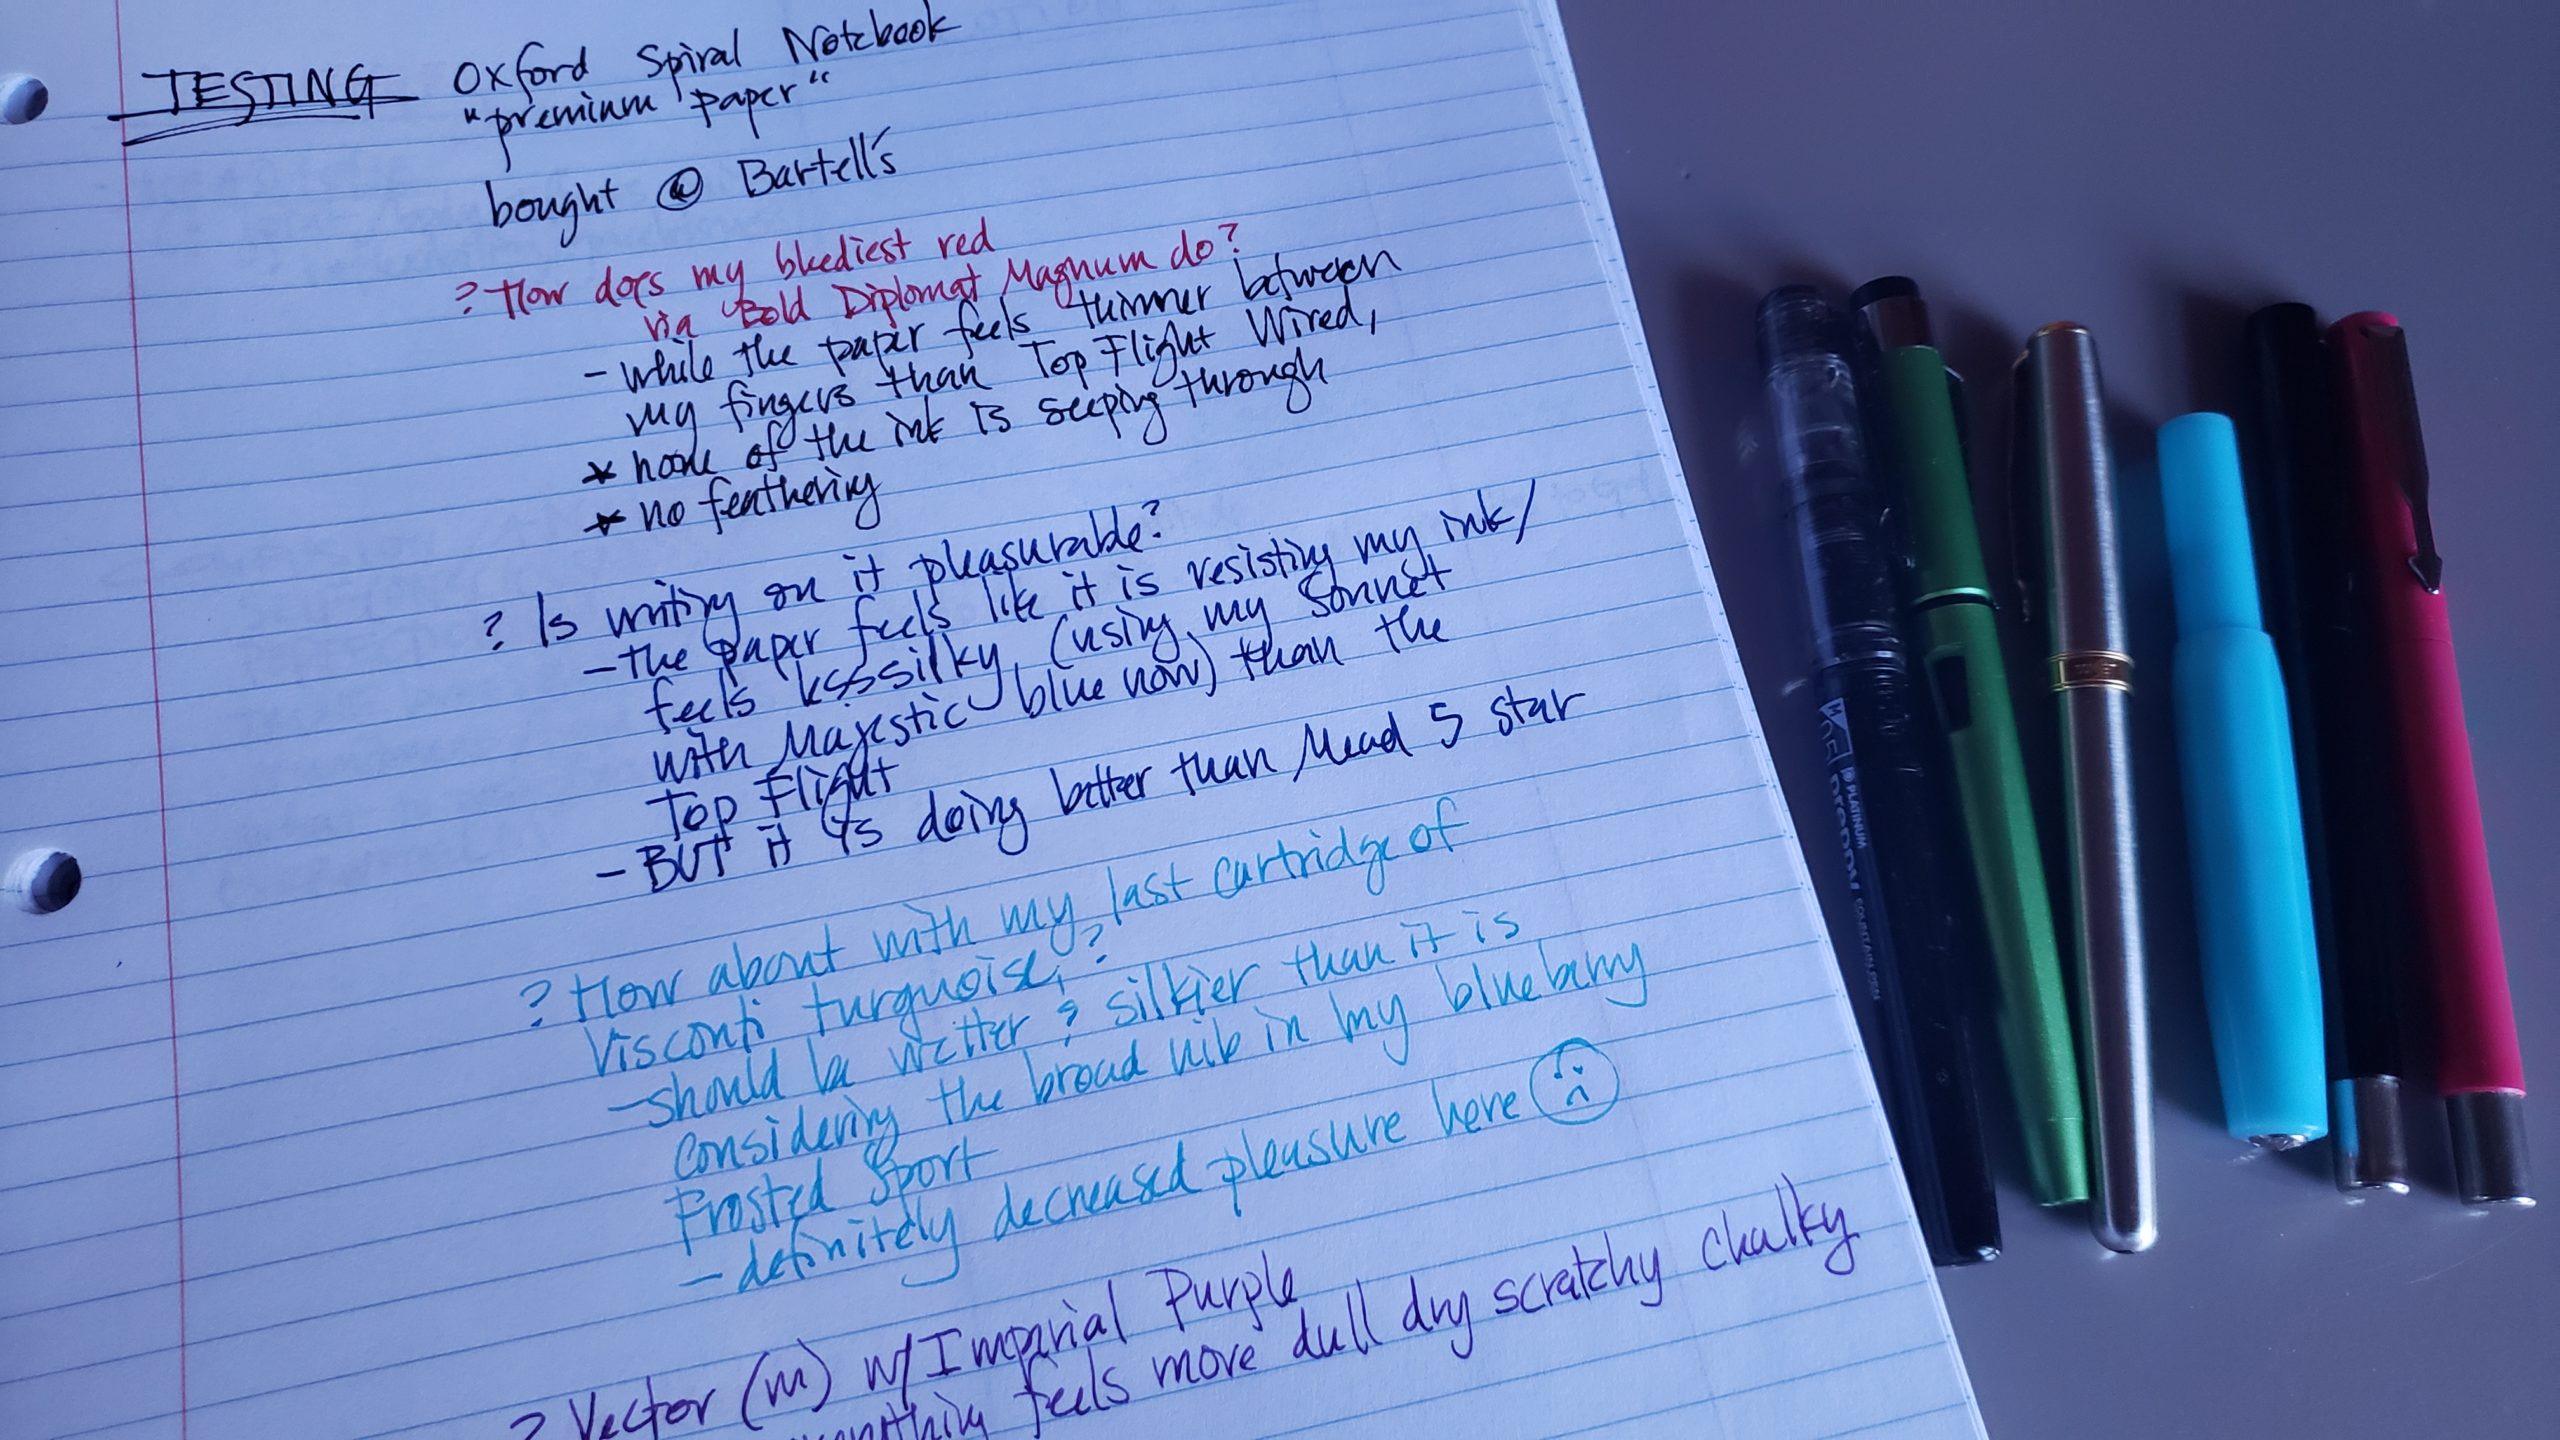 TESTING Oxford Spiral Notebook
"premium paper"
bought @ Bartell's
? How does my bleediest red
via Bold Diplomat Magnum do?
- while the paper feels thinner between
my fingers than Top Flight Wired,
* none of the ink is seeping through
* no feathering
? Is writing on it pleasurable?
- the paper feels like it is resisting my ink/
feels less silky (using my Sonnet
with Majestic blue now) than the
Top Flight
- BUT it is doing better than Mead 5 star
? How about with my last cartridge of
Visconti turquoise?
- should be wetter & silkier than it is
considering the broad nib in my blueberry
Frosted Sport
- definitely decreased pleasure here
? Vector (m) w/ Imperial Purple
everything feels more dull dry scratchy chalky
M 05 PLATINUM preppy FOUNTAIN PEN